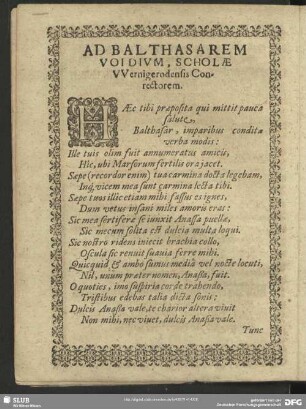 AD BALTHASAREM
VOIDIVM, SCHOLÆ
VVernigerodensis Con-
rectorem.
HÆc tibi præposta qui mittit pauca
salute,
Balthasar, imparibus condita
verba modis:
Ille tuis olim fuit annumeratus amicis,
Hic, ubi Marsorum fertilis ora jacet.
Sæpe (recordor enim) tua carmina docta legebam,
Inq́; vicem mea sunt carmina lecta tibi.
Sæpe tuos illic etiam mihi fassus es ignes,
Dum vetus insani miles amoris eras:
Sic mea sertiferæ se junxit Anassa puellæ,
Sic mecum solita est dulcia multa loqui.
Sic nostro ridens iniecit brachia collo,
Oscula sic renuit suavia ferre mihi.
Quicquid & ambo sumus mediâ vel nocte locuti,
Nil, unum præter nomen, Anassa, fuit.
O quoties, imo suspiria corde trahendo,
Tristibus edebas talia dicta sonis:
Dulcis Anassa vale, te charior altera vivit
Non mihi, nec vivet, dulcis Anassa vale.
Tunc
SLUB
Wir führen Wissen.
gefördert von der
Deutschen Forschungsgemeinschaft
DFG